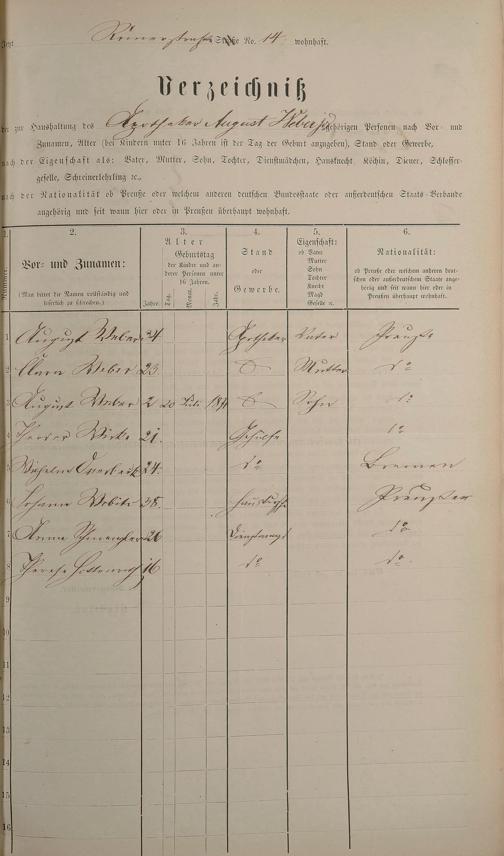 Jetzt Straße No. 14 wohnhaft.
Verzeichniß
der zur Haushaltung des Apotheker August Weber gehörigen Personen nach Vor- und
Zunamen, Alter (bei Kindern unter 16 Jahren ist der Tag der Geburt anzugeben), Stand oder Gewerbe,
nach der Eigenschaft als: Vater, Mutter, Sohn, Tochter, Dienstmädchen, Hausknecht, Köchin, Diener, Schlosser-
geselle, Schreinerlehrling ꝛc.,
nach der Nationalität ob Preuße oder welchem anderen deutschen Bundesstaate oder außerdeutschen Staats-Verbande
angehörig und seit wann hier oder in Preußen überhaupt wohnhaft.
1. 2. 3. 4. 5. 6.
Nummer. Vor- und Zunamen: Alter Stand oder Gewerbe. Eigenschaft: Nationalität:
(Man bittet die Namen vollständig und
leserlich zu schreiben.)
Geburtstag
der Kinder und an-
derer Personen unter
16 Jahren.
Jahre. Tag. Monat. Jahr.
ob Vater
Mutter
Sohn
Tochter
Knecht
Magd
Geselle ꝛc.
ob Preuße oder welchem anderen deut-
schen oder außerdeutschen Staate ange-
hörig und seit wann hier oder in
Preußen überhaupt wohnhaft.
1 August Weber 34 Apotheker Vater Preuße
2 Weber 23 Mutter do
3 August Weber 2 20 Juli Sohn do
4 Theodor 21. Gehülfe do
5 Wilhelm Overbeck 24. do Bremen
6 Johann 38. Preuße
7 Anna 26 Dienstmagd do
8 Therese 16 do do
9
10
11
12
13
14
15
16